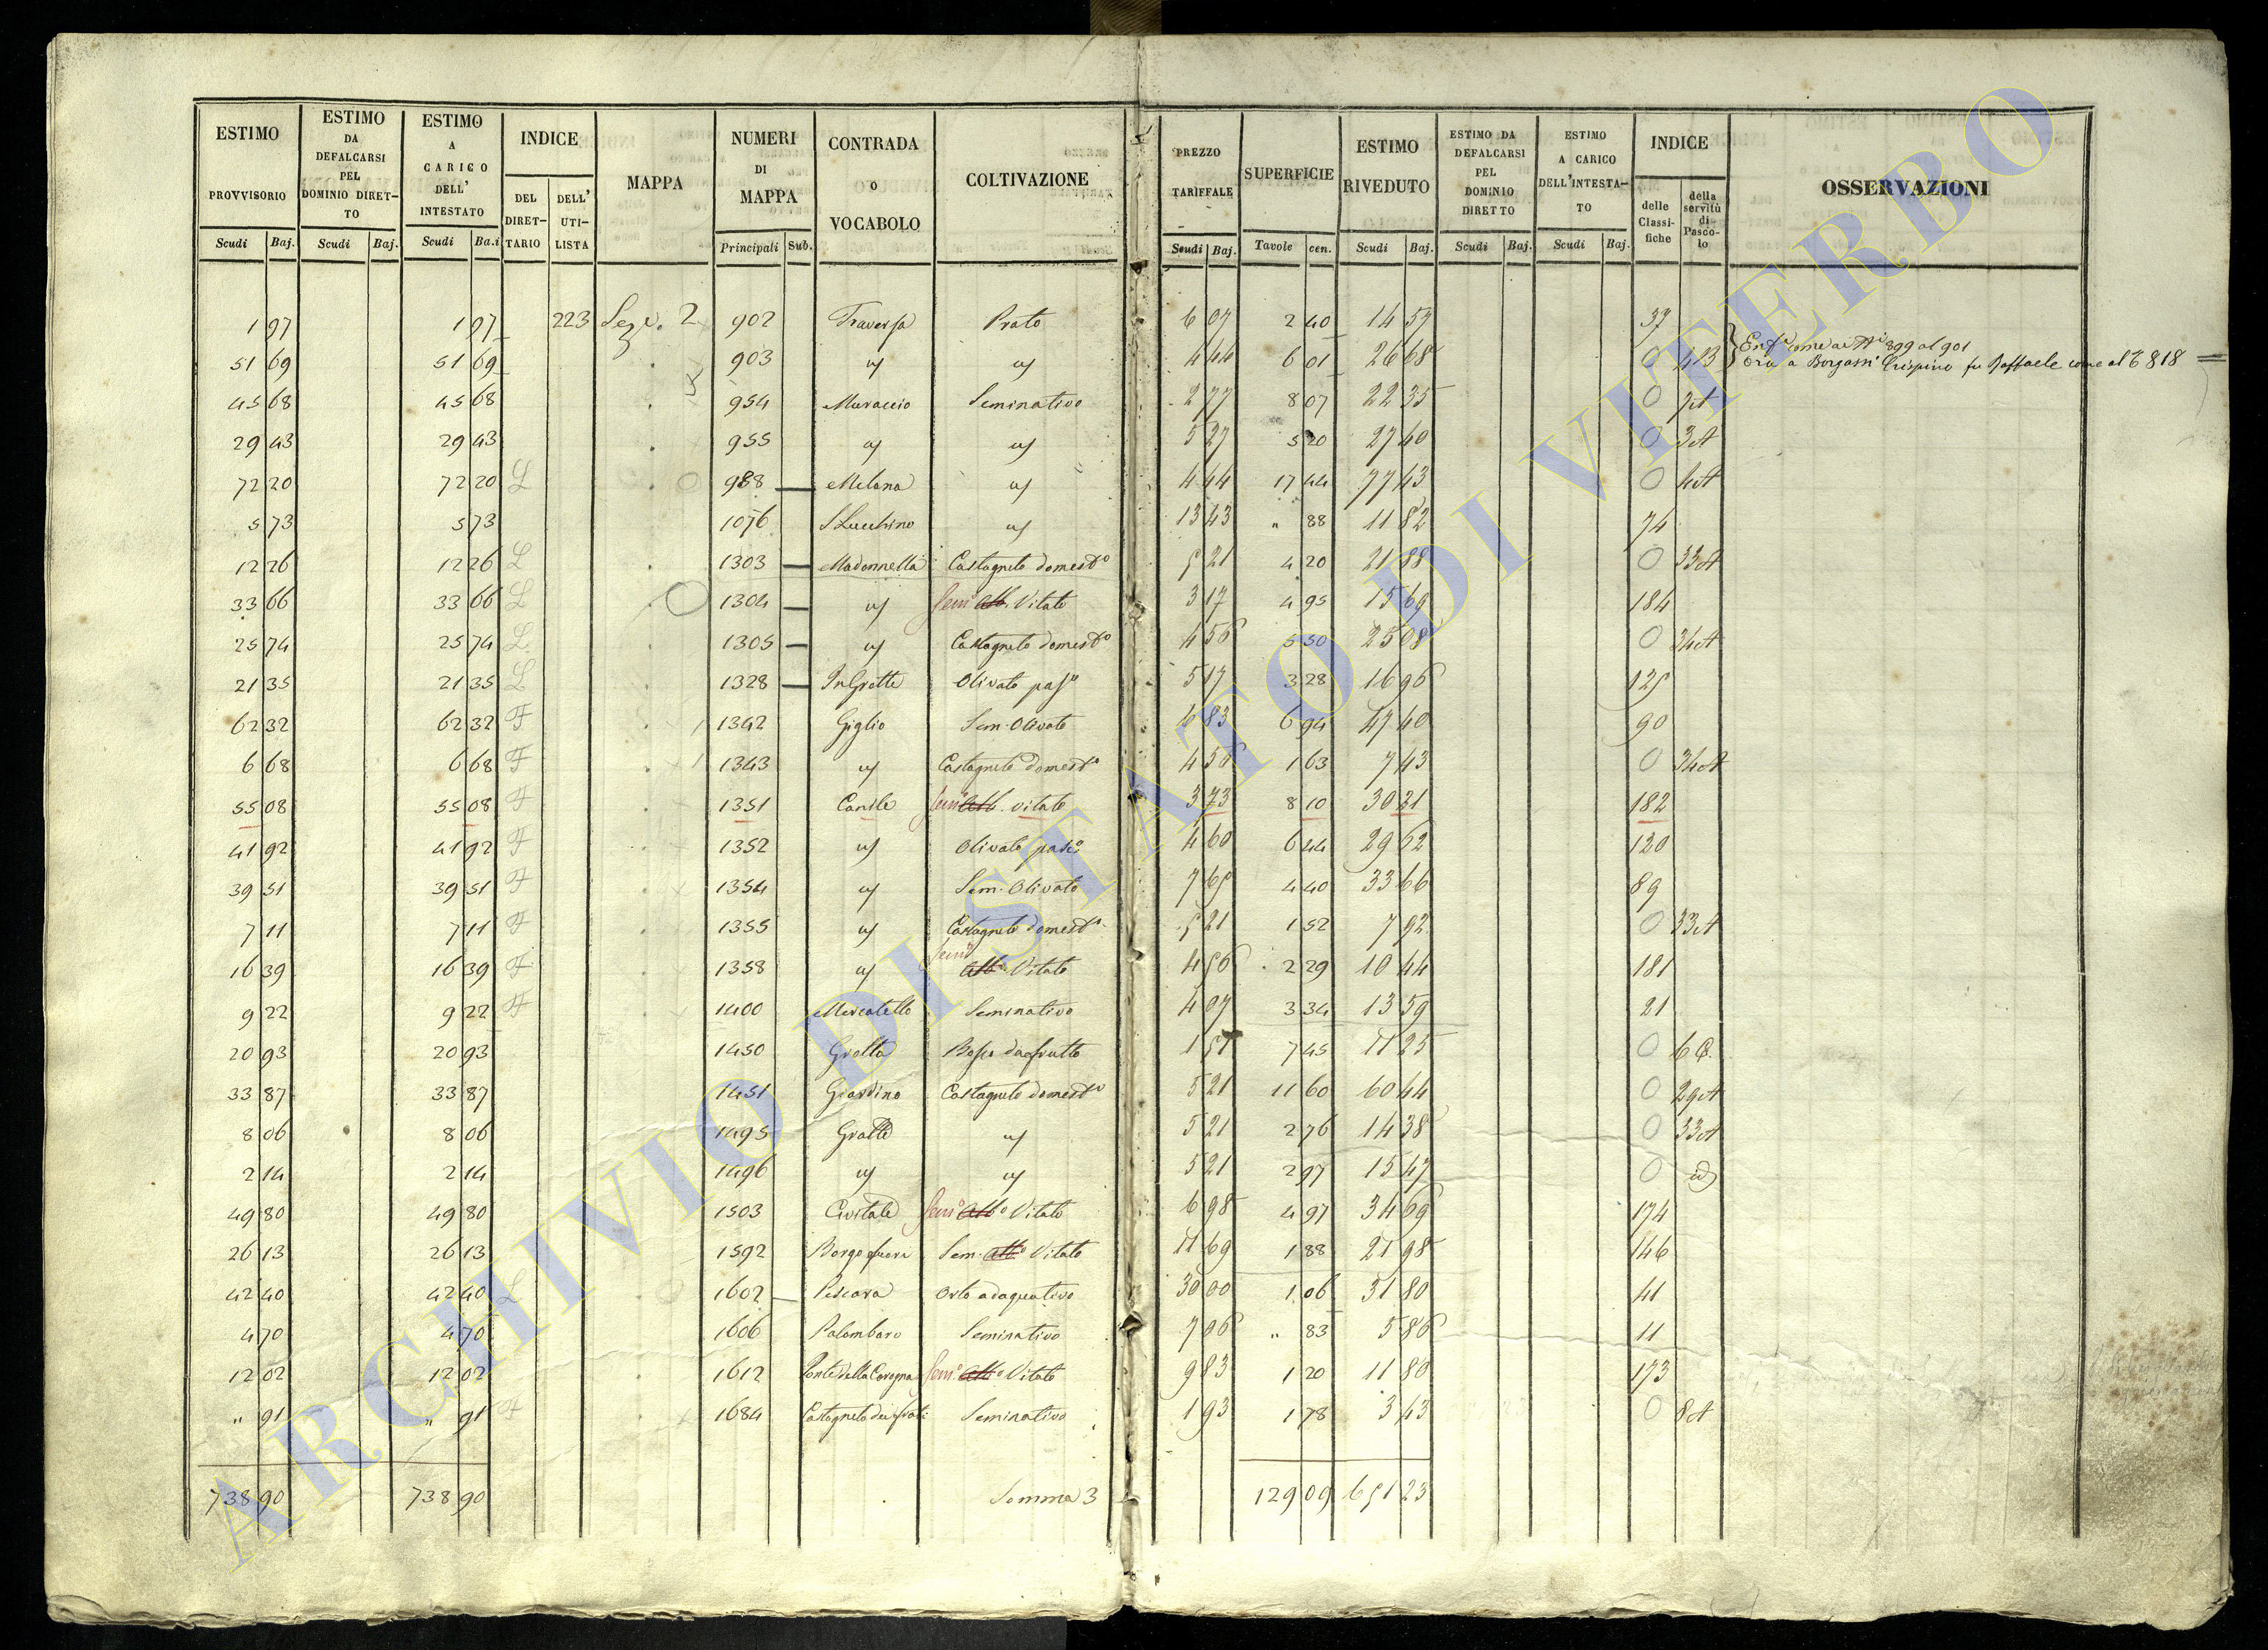 ESTIMO PROVVISORIO | ESTIMO DA DEFALCARSI PEL DOMINIO DIRETTO | ESTIMO A CARICO DELL' INTESTATO | INDICE | MAPPA | NUMERI DI MAPPA | CONTRADA O VOCABOLO | COLTIVAZIONE | PREZZO TARIFFALE | SUPERFICIE | ESTIMO RIVEDUTO | ESTIMO DA DEFALCARSI PEL DOMINIO DIRETTO | ESTIMO A CARICO DELL'INTESTATO | INDICE | OSSERVAZIONI
DEL DIRETTARIO | DELL' UTILISTA | delle Classifiche | della servitù di Pascolo
Scudi | Baj. | Scudi | Baj. | Scudi | Ba.i | Principali | Sub. | Scudi | Baj. | Tavole | cen. | Scudi | Baj. | Scudi | Baj. | Scudi | Baj.
1 97 | 1 97 | 223 | Sez. 2 | 902 | Traversa | Prato | 6 07 | 2 40 | 14 57 | 37
51 69 | 51 69 | 903 | " | " | 4 44 | 6 01 | 26 68 | 0 | 4B | come ai N.i 899 al 901
Ora a Borgassi Crispino fu Raffaele come al 818
45 68 | 45 68 | 954 | Muraccio | Seminativo | 2 77 | 8 07 | 22 35 | 0 | 7A
29 43 | 29 43 | 955 | " | " | 5 27 | 5 20 | 27 40 | 0 | 3A
72 20 | 72 20 | L | 988 | Melona | " | 4 44 | 17 44 | 77 43 | 0 | 4A
5 73 | 5 73 | 1076 | S Lucchino | " | 13 43 | " 88 | 11 82 | 74
12 26 | 12 26 | L | 1303 | Madonnella | Castagneto domest.o | 5 21 | 4 20 | 21 88 | 0 | 33A
33 66 | 33 66 | L | 1304 | " | Sem.o Alb. Vitato | 3 17 | 4 95 | 15 69 | 184
25 74 | 25 74 | L | 1305 | " | Castagneto domest.o | 4 56 | 5 50 | 25 08 | 0 | 34A
21 35 | 21 35 | L | 1328 | InGrotte | Olivato pas.o | 5 17 | 3 28 | 16 96 | 125
62 32 | 62 32 | F | 1342 | Giglio | Sem. Olivato | 6 83 | 6 94 | 47 40 | 90
6 68 | 6 68 | F | 1343 | " | Castagneto domest.o | 4 56 | 1 63 | 7 43 | 0 | 34A
55 08 | 55 08 | F | 1351 | Canile | Sem.o Alb. vitato | 3 73 | 8 10 | 30 21 | 182
41 92 | 41 92 | F | 1352 | " | Olivato pasc.o | 4 60 | 6 44 | 29 62 | 120
39 51 | 39 51 | F | 1354 | " | Sem. Olivato | 7 65 | 4 40 | 33 66 | 89
7 11 | 7 11 | F | 1355 | " | Castagneto domest.o | 5 21 | 1 52 | 7 92 | 0 | 33A
16 39 | 16 39 | F | 1358 | " | Sem.o Alb.o Vitato | 4 56 | 2 29 | 10 44 | 181
9 22 | 9 22 | F | 1400 | Mercatello | Seminativo | 4 07 | 3 34 | 13 59 | 21
20 93 | 20 93 | 1450 | Grotta | Bosco da frutto | 1 51 | 7 45 | 11 25 | 0
33 87 | 33 87 | 1451 | Giardino | Castagneto domest.o | 5 21 | 11 60 | 60 44 | 0 | 29A
8 06 | 8 06 | 1495 | Grotte | " | 5 21 | 2 76 | 14 38 | 0 | 33A
2 14 | 2 14 | 1496 | " | " | 5 21 | 2 97 | 15 47 | 0 | id
49 80 | 49 80 | 1503 | Civitale | Sem.o Alb.o Vitato | 6 98 | 4 97 | 34 69 | 174
26 13 | 26 13 | 1592 | Borgo fuori | Sem. Alb.o Vitato | 11 69 | 1 88 | 21 98 | 146
42 40 | 42 40 | L | 1602 | Pescara | Orto adaquativo | 30 00 | 1 06 | 31 80 | 41
4 70 | 4 70 | 1606 | Palombaro | Seminativo | 7 06 | " 83 | 5 86 | 11
12 02 | 12 02 | 1612 | Ponte della Carogna | Sem.o Alb.o Vitato | 9 83 | 1 20 | 11 80 | 173
" 91 | " 91 | F | 1684 | Castagneto dei frati | Seminativo | 1 93 | 1 78 | 3 43 | 0 | 8A
738 90 | 738 90 | Somma 3 | 129 09 | 651 23
ARCHIVIO DI STATO DI VITERBO